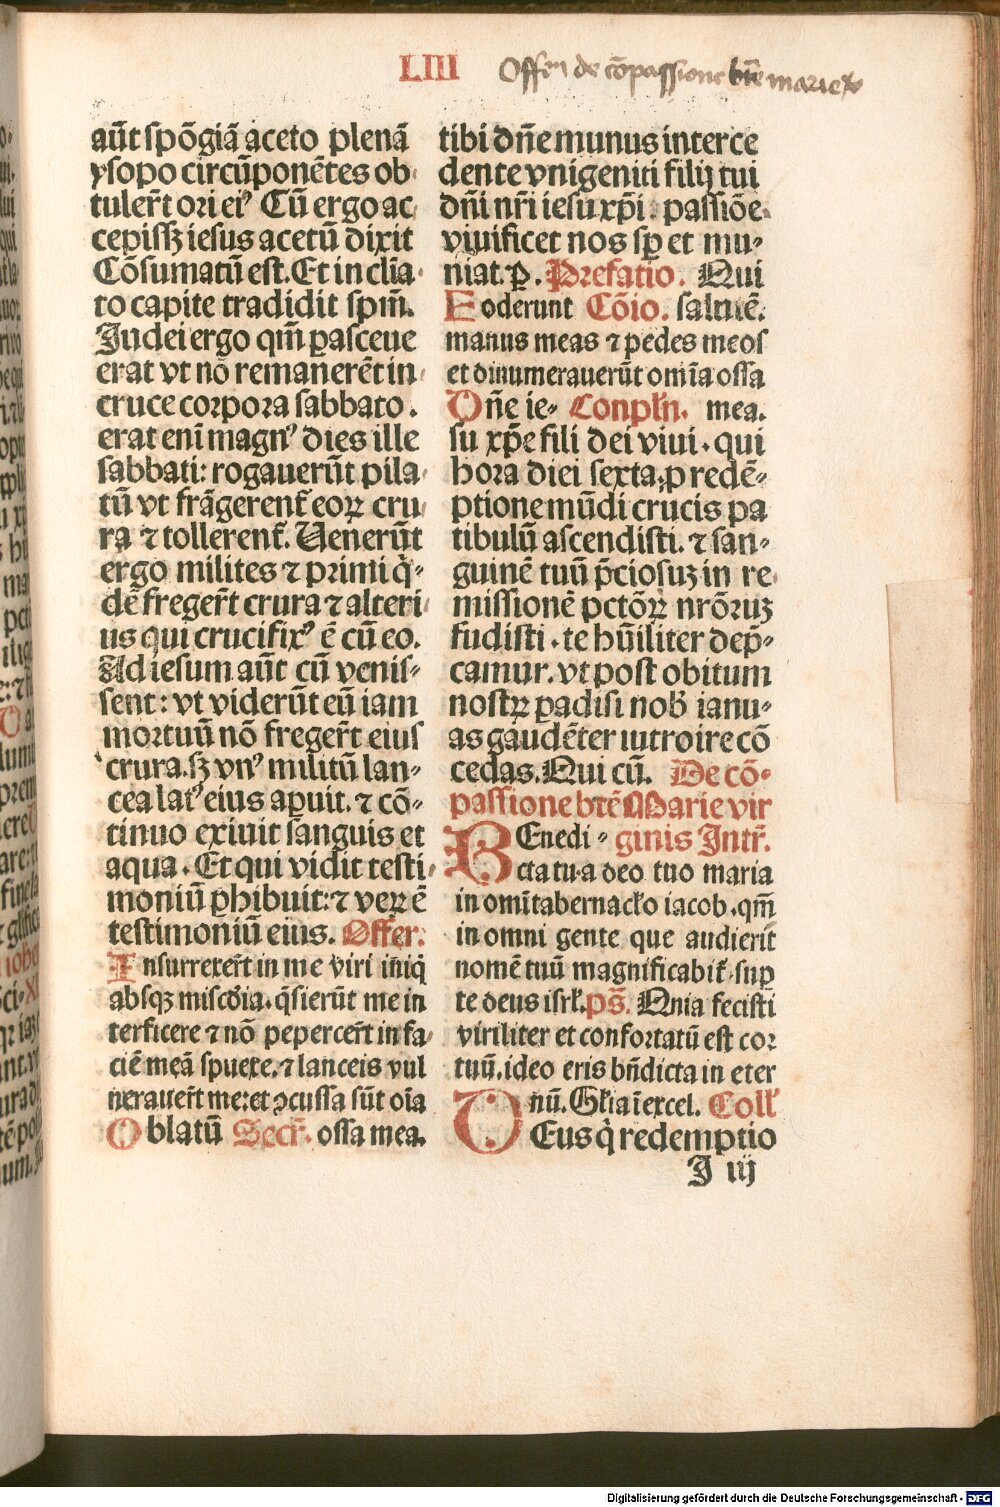 LIII
Offm de cōpassione btē marie
aūt spōgiā aceto plenā
ysopo circūponētes ob
tuler̄t ori eiꝰ Cū ergo ac
cepissꝫ iesus acetū dixit
Cōsumatū est. Et inclia
to capite tradidit spm̄.
Judei ergo qm̄ ꝑasceue
erat vt nō remanerēt in
cruce corpora sabbato.
erat eni magnꝰ dies ille
sabbati: rogauerūt pila
tū vt frāgerent̄ eoꝝ cru
ra ⁊ tollerent̄. Uenerūt
ergo milites ⁊ primi q̄⸗
dē freger̄t crura ⁊ alteri
us qui crucifixꝰ ē cū eo.
Ad iesum aūt cū venis⸗
sent: vt viderūt eū iam
mortuū nō freger̄t eius
crura. sꝫ vnꝰ militū lan⸗
cea latꝰ eius aꝑuit. ⁊ cō⸗
tinuo exiuit sanguis et
aqua. Et qui vidit testi
moniū ꝑhibuit: ⁊ veꝝ ē
testimoniū eius. Offer.
Insurrexer̄t in me viri iniq̄
absqꝫ miscďia. q̄sierūt me in
terficere ⁊ nō pepercer̄t in fa
ciē meā spuere. ⁊ lanceis vul
nerauer̄t me: et ꝯcussa sūt oīa
Oblatū Secr̄. ossa mea.
tibi dn̄e munus interce
dente vnigeniti filij tui
dn̄i nr̄i iesu xp̄i. passiōe
viuificet nos sp̄ et mu⸗
niat. ꝑ. Prefatio. Qui
Foderunt Cōio. salutē.
manus meas ⁊ pedes meos
et dinumerauerūt omīa ossa
Dn̄e ie⸗ Conpln̄. mea.
su xp̄e fili dei viui. qui
hora diei sexta, ꝓ redē⸗
ptione mūdi crucis pa
tibulū ascendisti. ⁊ san⸗
guinē tuū p̄ciosuꝫ in re
missionē pctōꝝ nrōruꝫ
fudisti. te hūiliter dep̄⸗
camur. vt post obitum
nostꝝ ꝑadisi nob̄ ianu⸗
as gaudēter iutroire cō
cedas. Qui cū. De cō⸗
passione btē Marie vir
BEnedi⸗ ginis Intr̄.
cta tu a deo tuo maria
in omī tabernaclo iacob. qm̄
in omni gente que audierit
nomē tuū magnificabit̄ sup
te deus isrl̄. ps̄. Quia fecisti
viriliter et confortatū est cor
tuū. ideo eris bn̄dicta in eter
nū. Gl̄ia ī excel. Coll̄
DEus q̄ redemptio
I iij
Digitalisierung gefördert durch die Deutsche Forschungsgemeinschaft - DFG